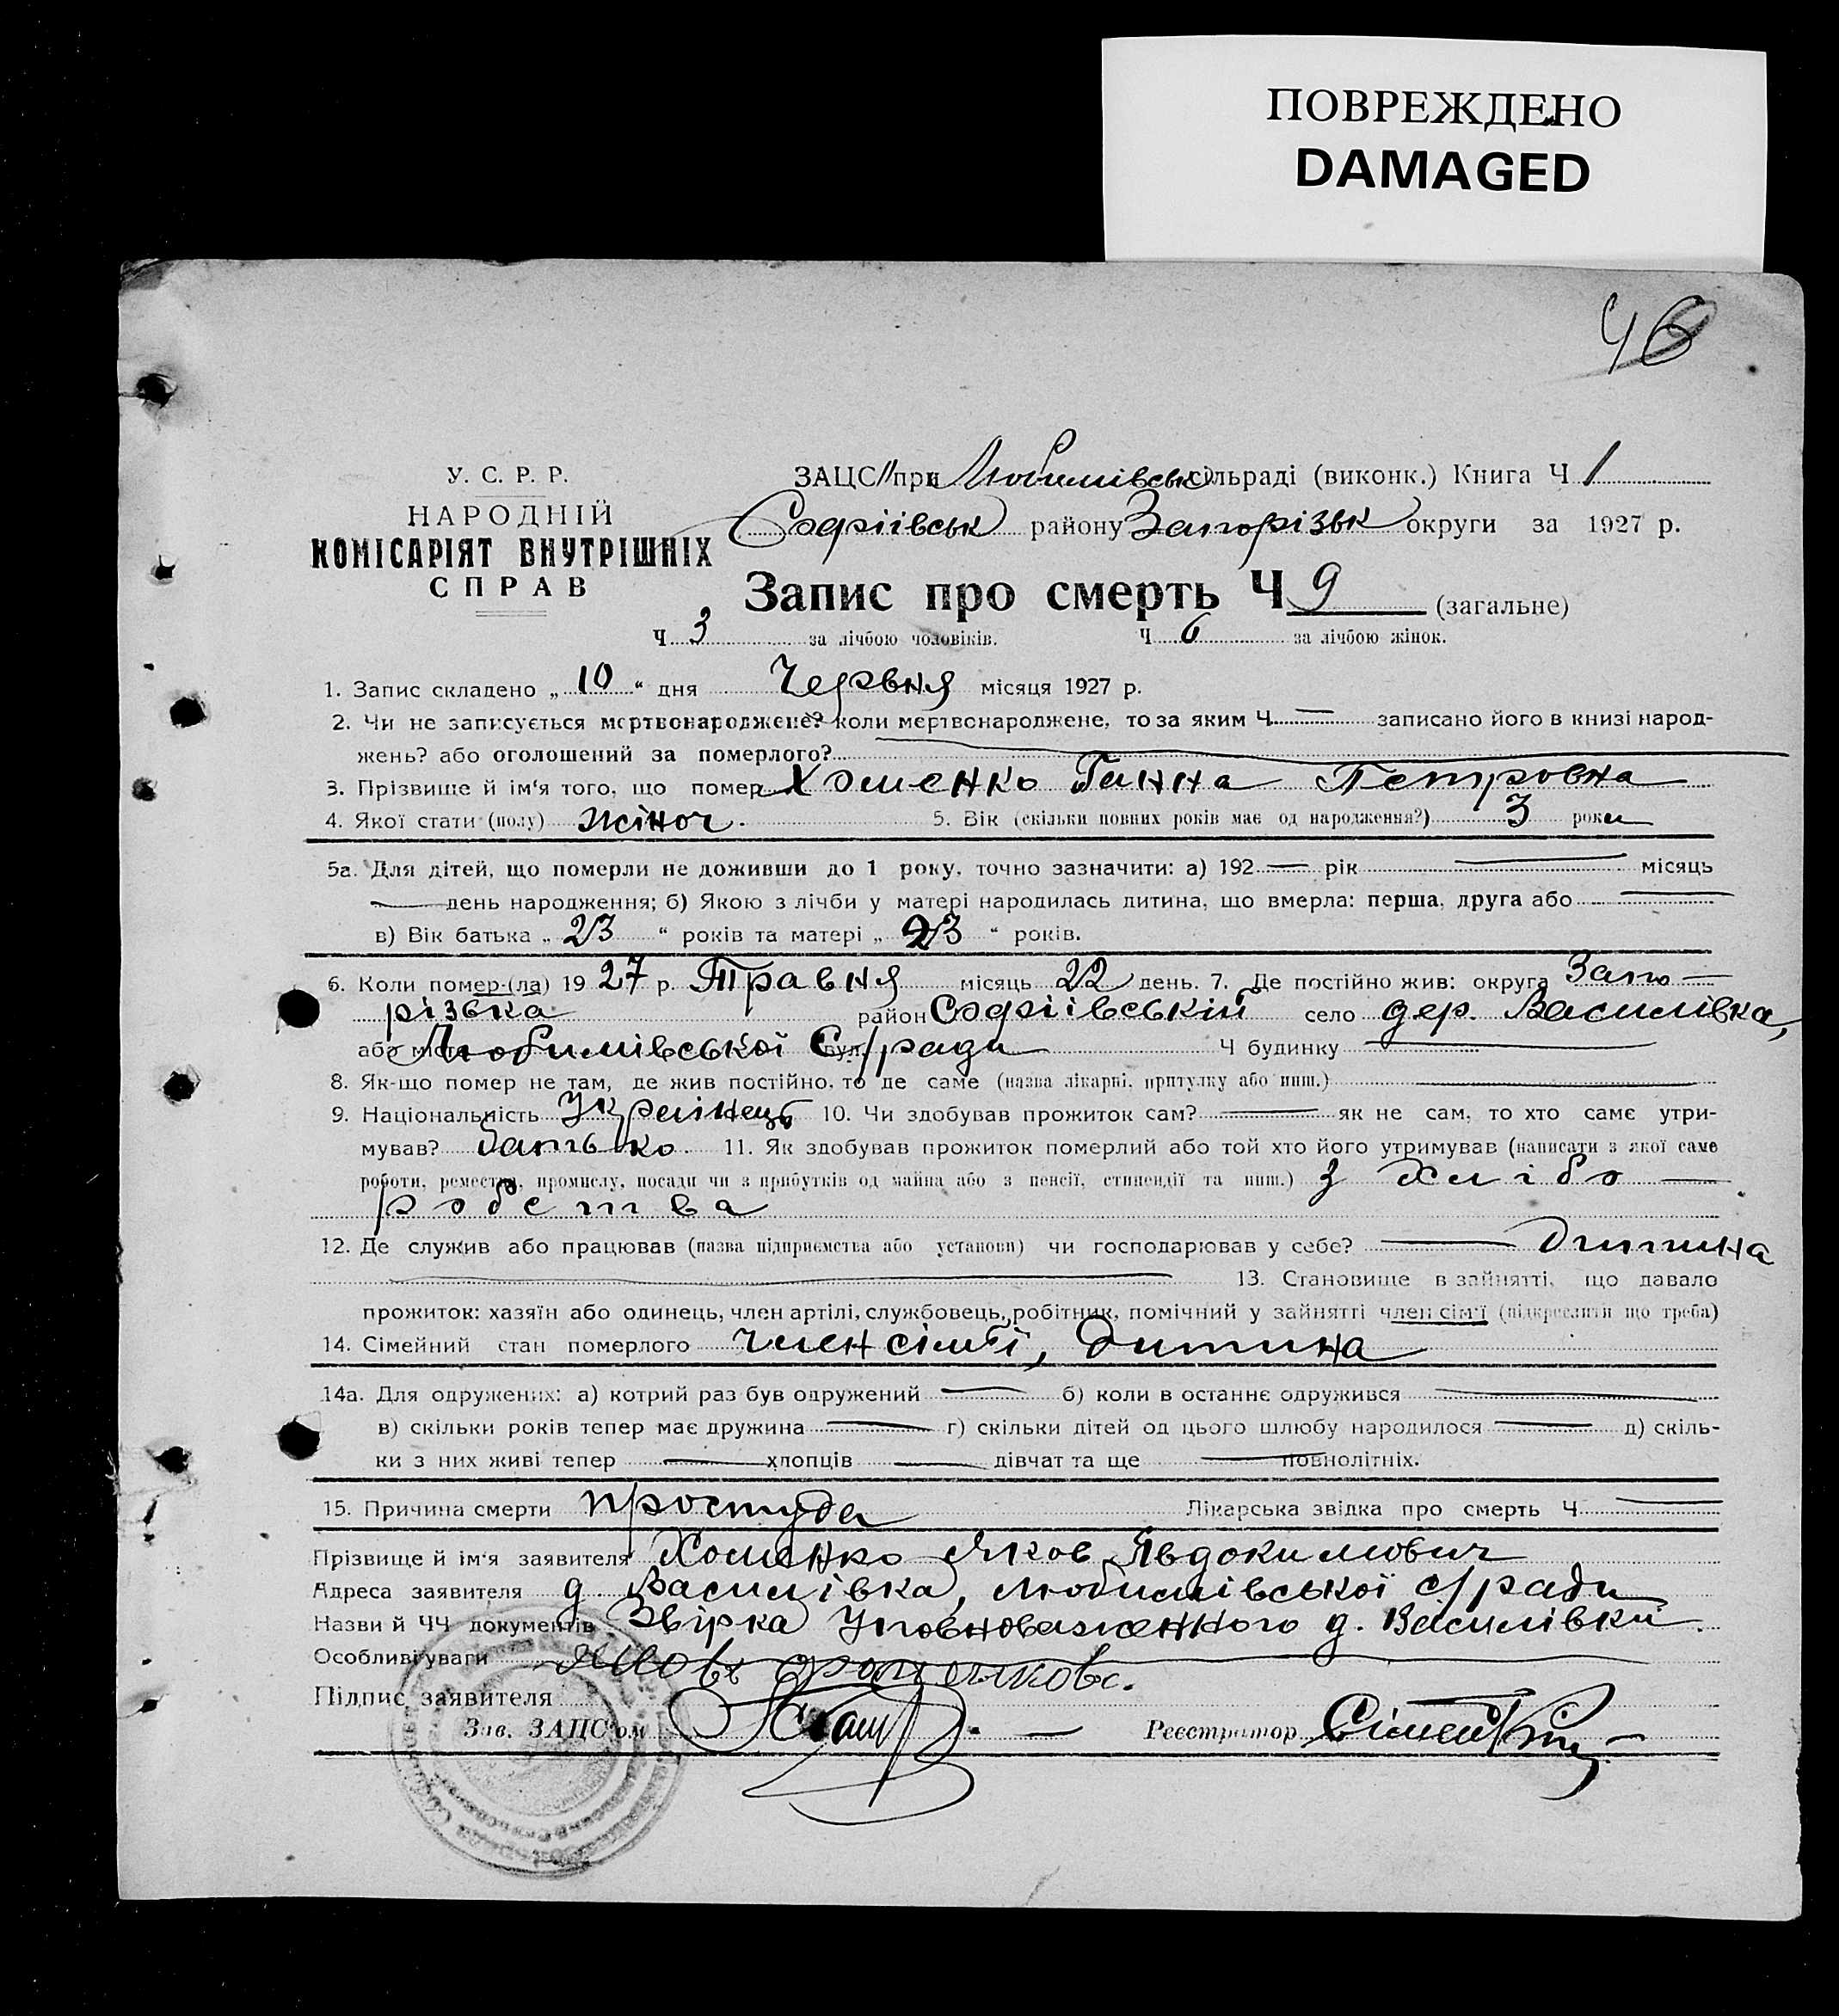 ПОВРЕЖДЕНО
DAMAGED
46
У. С. Р. Р.
НАРОДНІЙ
КОМІСАРІЯТ ВНУТРІШНІХ
СПРАВ
ЗАЦС при Любимівськ сільраді (виконк.) Книга Ч 1
Софіївськ району Запорізьк округи за 1927 р.
Запис про смерть Ч 9 (загальне)
Ч 3 за лічбою чоловіків. Ч 6 за лічбою жінок.
1. Запис складено „ 10 “ дня Червня місяця 1927 р.
2. Чи не записується мертвонароджене? коли мертвонароджене, то за яким Ч — записано його в книзі народ-
жень? або оголошений за померлого?
3. Прізвище й ім'я того, що помер Хоменко Ганна Петровна
4. Якої стати (полу) жіноч. 5. Вік (скільки повних років має од народження?) 3 роки
5а. Для дітей, що померли не доживши до 1 року, точно зазначити: а) 192 — рік — місяць
— день народження; б) Якою з лічби у матері народилась дитина, що вмерла: перша, друга або —
в) Вік батька „ 23 “ років та матері „ 23 “ років.
6. Коли помер-(ла) 19 27 р. Травня місяць 22 день. 7. Де постійно жив: округа Запо-
різька район Софіївській село дер. Василівка,
або місто Любимівської С/ради вул. Ч будинку —
8. Як-що помер не там, де жив постійно, то де саме (назва лікарні, притулку або инш.) —
9. Національність Українець 10. Чи здобував прожиток сам? — як не сам, то хто саме утри-
мував? батько 11. Як здобував прожиток померлий або той хто його утримував (написати з якої саме
роботи, ремества, промислу, посади чи з прибутків од майна або з пенсії, стипендії та инш.) З Хлібо-
робства
12. Де служив або працював (назва підприємства або установи) чи господарював у себе? — Дитина
— 13. Становище в зайнятті, що давало
прожиток: хазяїн або одинець, член артілі, службовець, робітник, помічний у зайнятті член сім'ї (підкреслити що треба)
14. Сімейний стан померлого член сім'ї, Дитина
14а. Для одружених: а) котрий раз був одружений — б) коли в останнє одружився —
в) скільки років тепер має дружина — г) скільки дітей од цього шлюбу народилося — д) скіль-
ки з них живі тепер — хлопців — дівчат та ще — повнолітніх.
15. Причина смерти простуда Лікарська звідка про смерть Ч —
Прізвище й ім'я заявителя Хоменко Яков Явдокимович
Адреса заявителя д Василівка, Любимівської с/ради
Назви й ЧЧ документів Звірка Уповноваженного д. Василівки
Особливі уваги —
Підпис заявителя
Зав. ЗАЦС'ом Реєстратор